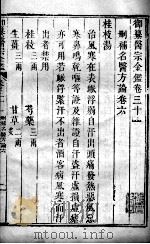 御纂醫宗金鑑卷三十一
刪補名醫方論卷六
桂枝湯
治風寒在表脈浮弱自汗出頭痛發熱惡風惡
寒鼻鳴乾嘔等證雜證自汗盜汗虛瘧虛痢
亦可用若脈浮緊汗不出者酒客病風寒而汗
出者禁用
桂枝三兩 芍藥三兩
生薑三兩 甘草二兩